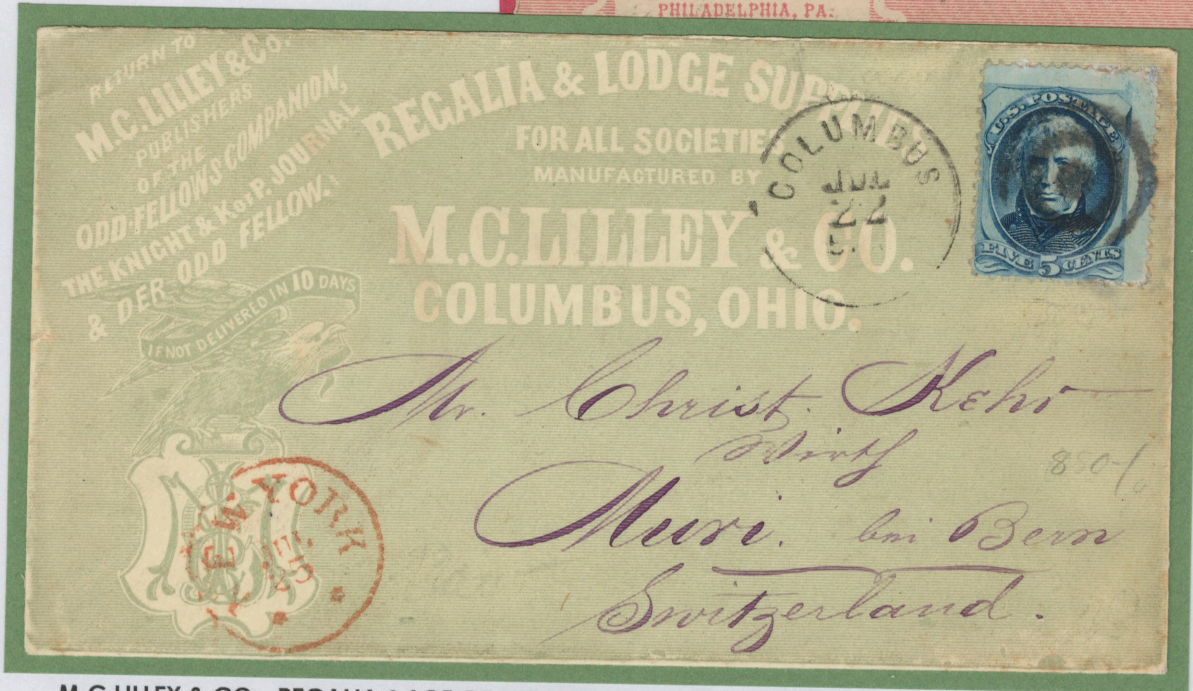 PHILADELPHIA, PA.
RETURN TO
M.C. LILLEY & CO.
PUBLISHERS
OF THE
ODD-FELLOWS COMPANION,
THE KNIGHT & K. OF P. JOURNAL
& DER ODD FELLOW.
IF NOT DELIVERED IN 10 DAYS
REGALIA & LODGE SUPPLIES
FOR ALL SOCIETIES
MANUFACTURED BY
M.C. LILLEY & CO.
COLUMBUS, OHIO.
COLUMBUS
JUL
22
U.S. POSTAGE
FIVE 5 CENTS
Mr. Christ. Kehr
Wirth
Muri. bei Bern
Switzerland.
850-/
NEW YORK
JUL
M.C. LILLEY & CO.